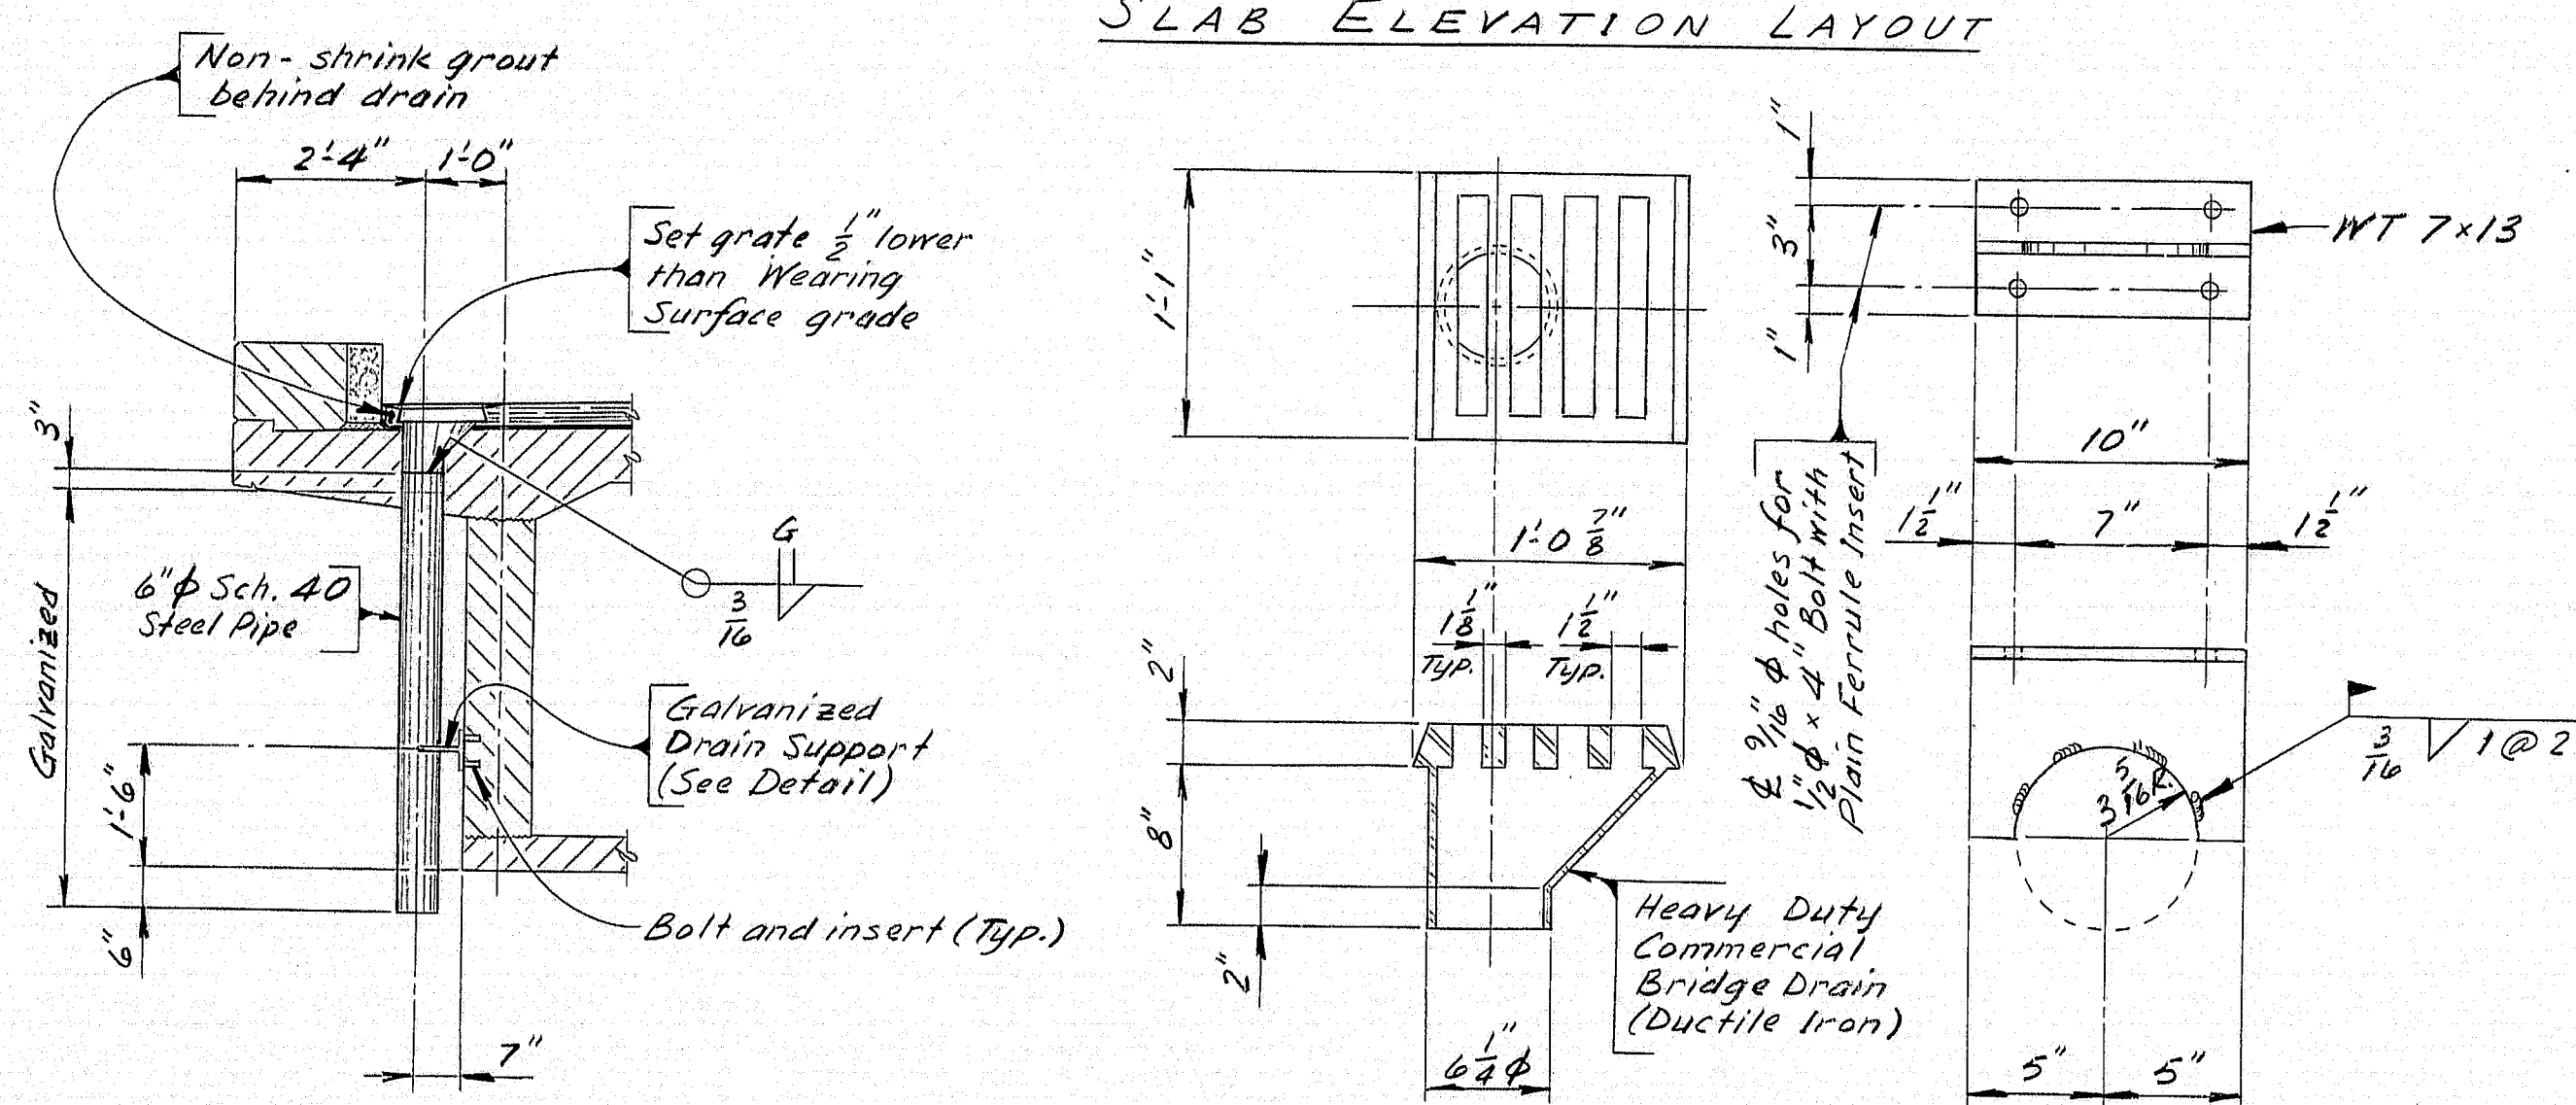 SLAB ELEVATION LAYOUT
Non-shrink grout
behind drain
2'-4"
1'-0"
Set grate 1/2" lower
than Wearing
Surface grade
3"
Galvanized
6"φ Sch. 40
Steel Pipe
G
3/16
Galvanized
Drain Support
(See Detail)
1'-6"
6"
Bolt and insert (Typ.)
7"
1'-1"
1'-0 7/8"
1 1/8"
Typ.
1 1/2"
Typ.
2"
8"
2"
6 1/4"φ
Heavy Duty
Commercial
Bridge Drain
(Ductile Iron)
1"
3"
1"
WT 7x13
℄ 9/16" φ holes for
1/2"φ x 4" Bolt with
Plain Ferrule Insert
10"
1 1/2"
7"
1 1/2"
3 5/16 R.
3/16
1@2
5"
5"